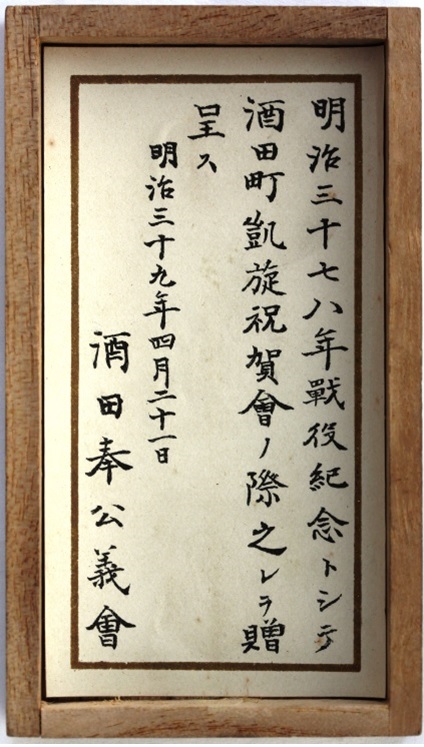 明治三十七八年戰役紀念トシテ
酒田町凱旋祝賀會ノ際之レヲ贈
呈ス
明治三十九年四月二十一日
酒田奉公義會